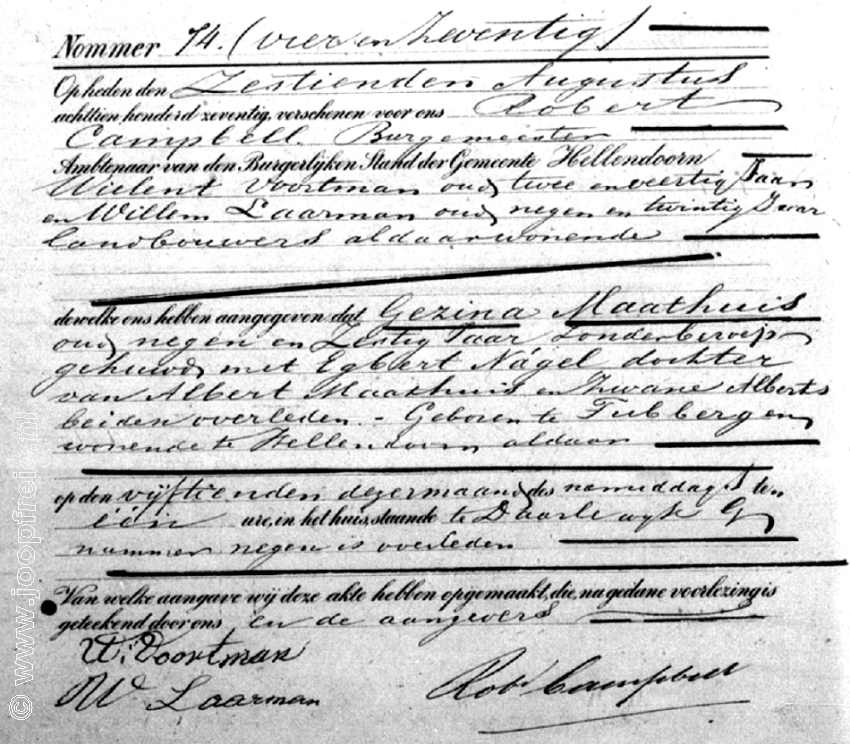 Nommer 74. (vier en Zeventig)
Op heden den Zestienden Augustus
achttien honderd zeventig, verschenen voor ons Robert
Campbell. Burgemeester
Ambtenaar van den Burgerlijken Stand der Gemeente Hellendoorn
Voortman oud twee en veertig Jaar
en Willem Laarman oud negen en twintig Jaar
landbouwers aldaar wonende
dewelke ons hebben aangegeven dat Gezina Maathuis
oud negen en Zestig Jaar Zonder beroep
gehuwd met Egbert Nágel dochter
van Albert Maathuis en Zwane Alberts
beiden overleden. - Geboren te Tubberg en
wonende te Hellendoorn aldaar
op den vijftienden dezer maand des namiddags te
één ure, in het huis, staande te Daarle wijk G
nummer negen is overleden
Van welke aangave wij deze akte hebben opgemaakt, die, na gedane voorlezing is
geteekend door ons en de aangevers
W. Voortman
W Laarman
Rob Campbell
© www.joopfrei.nl